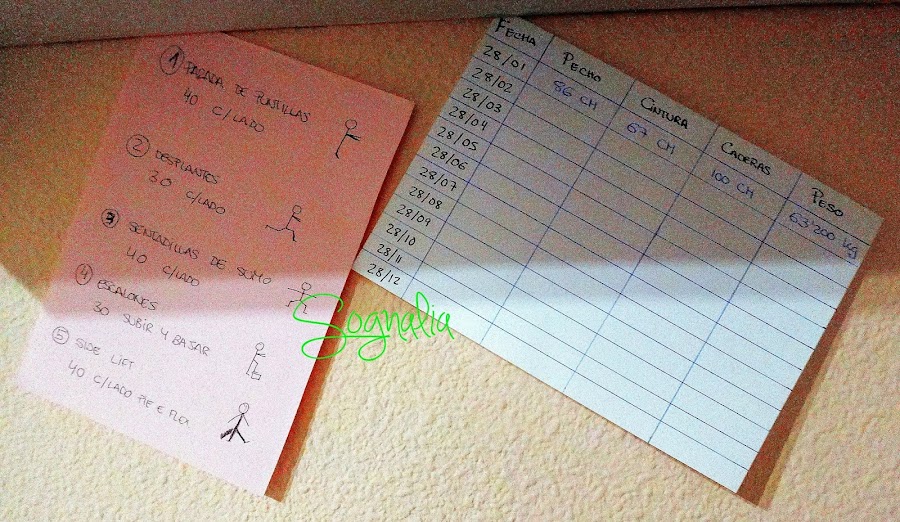 1 PATADA DE PUNTILLAS
40 C/LADO
2 DESPLANTES
30 C/LADO
3 SENTADILLAS DE SUMO
40 C/LADO
4 ESCALONES
30 SUBIR Y BAJAR
5 SIDE LIFT
40 C/LADO PIE E FLEX
FECHA PECHO CINTURA CADERAS PESO
28/01 86 CM 67 CM 100 CM 63'200 Kg
28/02
28/03
28/04
28/05
28/06
28/07
28/08
28/09
28/10
28/11
28/12
Sognalia